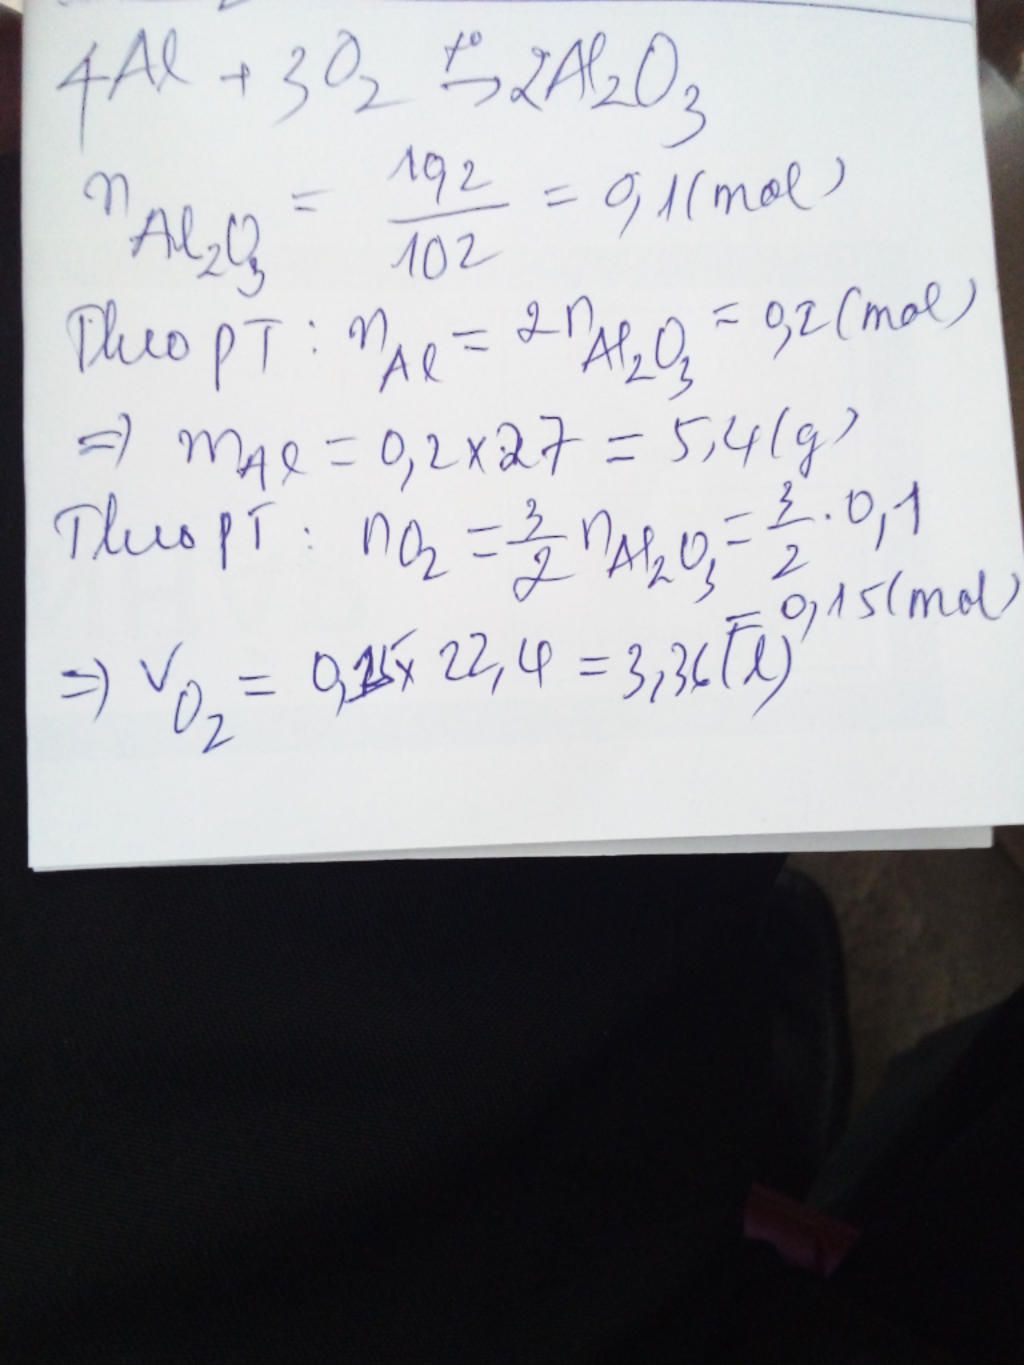 4Al + 3O₂ →(t°) 2Al₂O₃
n Al₂O₃ = 192/102 = 0,1 (mol)
Theo pT : n Al = 2n Al₂O₃ = 0,2 (mol)
=> m Al = 0,2 x 27 = 5,4 (g)
Theo pT : n O₂ = 3/2 n Al₂O₃ = 3/2 . 0,1
= 0,15 (mol)
=> V O₂ = 0,15 x 22,4 = 3,36 (l)